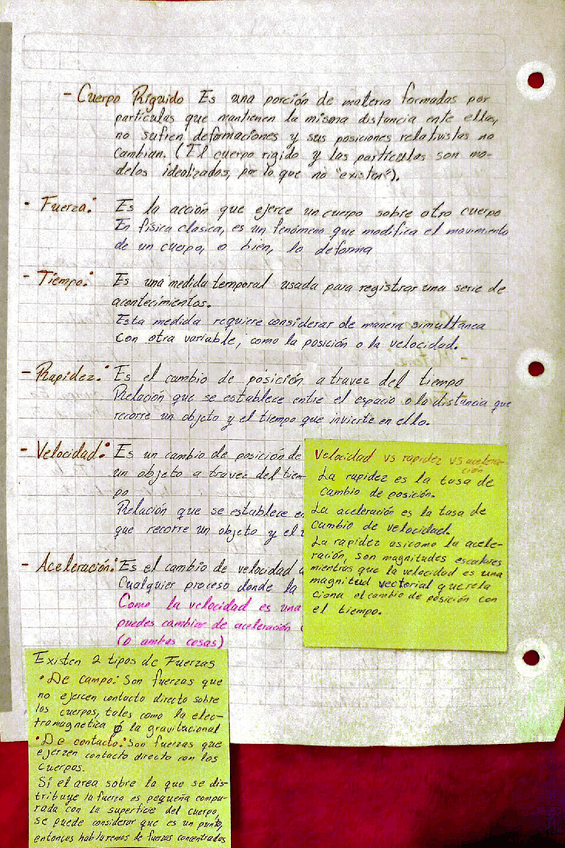 - Cuerpo Riguido Es una porción de materia formadas por
particulas que mantienen la misma distancia ente ellas,
no sufren deformaciones y sus posiciones relativistas no
Cambian. (El cuerpo rigido y las particulas son mo-
delos idealizados, por lo que no "existen").
- Fuerza: Es la acción que ejerce un cuerpo sobre otro cuerpo
En física clasica, es un fenómeno que modifica el movimiento
de un cuerpo, o bien, lo deforma
- Tiempo: Es una medida temporal usada para registrar una serie de
acontecimientos.
Esta medida requiere considerar de manera simultanea
Con otra variable, como la posición o la velocidad.
- Rapidez: Es el cambio de posición a travez del tiempo
Relación que se establece entre el espacio o la distancia que
recorre un objeto y el tiempo que invierte en ello.
- Velocidad: Es un cambio de posición de
un objeto a travez del tiem-
po
Relación que se establece e
que recorre un objeto y el
- Aceleración: Es el cambio de velocidad a
Cualquier proceso donde la
Como la velocidad es una
puedes cambiar de aceleración
(o ambas cosas)
Velocidad vs rapidez vs acelera-
ción
La rapidez es la tasa de
cambio de posición.
La aceleración es la tasa de
cambio de velocidad.
La rapidez asi como la acele-
ración, son magnitudes escalares
mientras que la velocidad es una
magnitud vectorial que rela
ciona el cambio de posición con
el tiempo.
Existen 2 tipos de Fuerzas
• De campo: Son fuerzas que
no ejercen contacto directo sobre
los cuerpos, tales como la elec-
tromagnetica o la gravitacional
• De contacto: Son fuerzas que
ejerzen contacto directo con los
cuerpos.
Sí el area sobre la que se dis-
tribuye la fuerza es pequeña compa-
rada con la superficie del cuerpo,
se puede considerar que es un punto,
entonces hablaremos de fuerzas concentradas